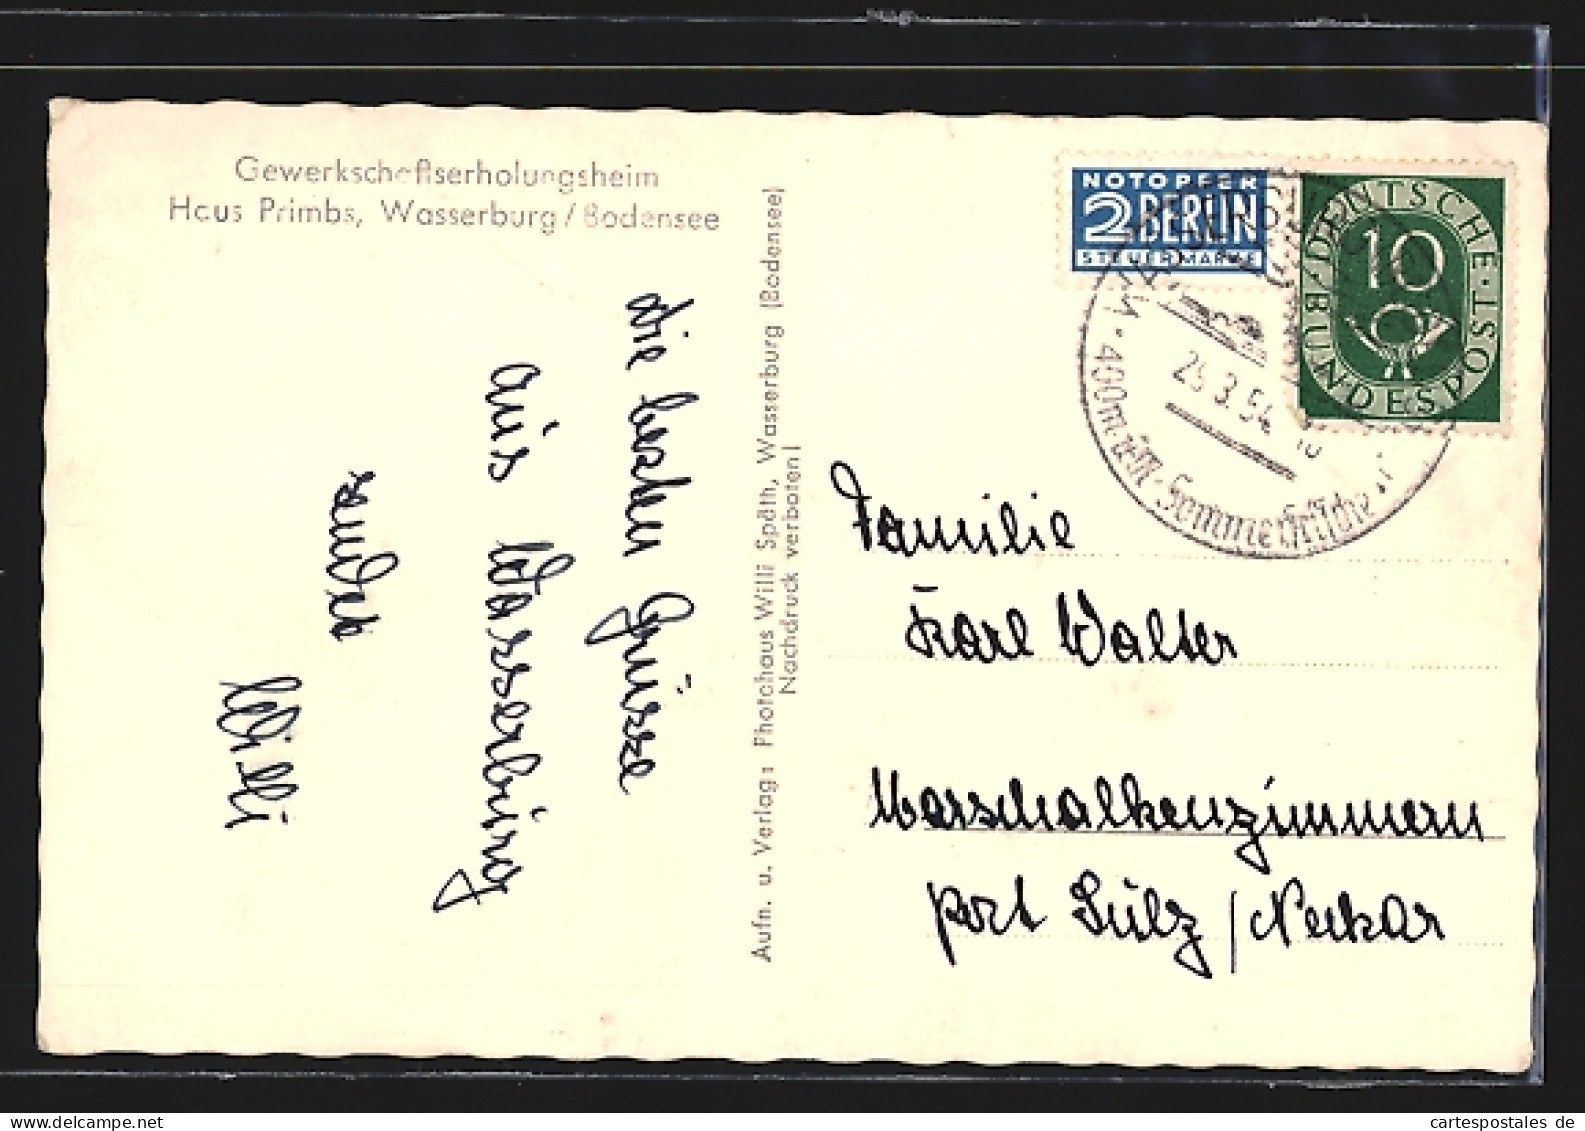 Gewerkschaftserholungsheim
Haus Primbs, Wasserburg/Bodensee
die besten Grüsse
aus Wasserburg
sendet
Willi
Aufn. u. Verlag: Photohaus Willi Späth, Wasserburg (Bodensee)
Nachdruck verboten!
NOTOPFER
2 BERLIN
STEUERMARKE
DEUTSCHE BUNDESPOST
10
WASSERBURG
25.3.54
400m.ü.M. Sommerfrische
Familie
Karl Walter
Marschalkenzimmern
port Sulz/Neckar
cartespostales de